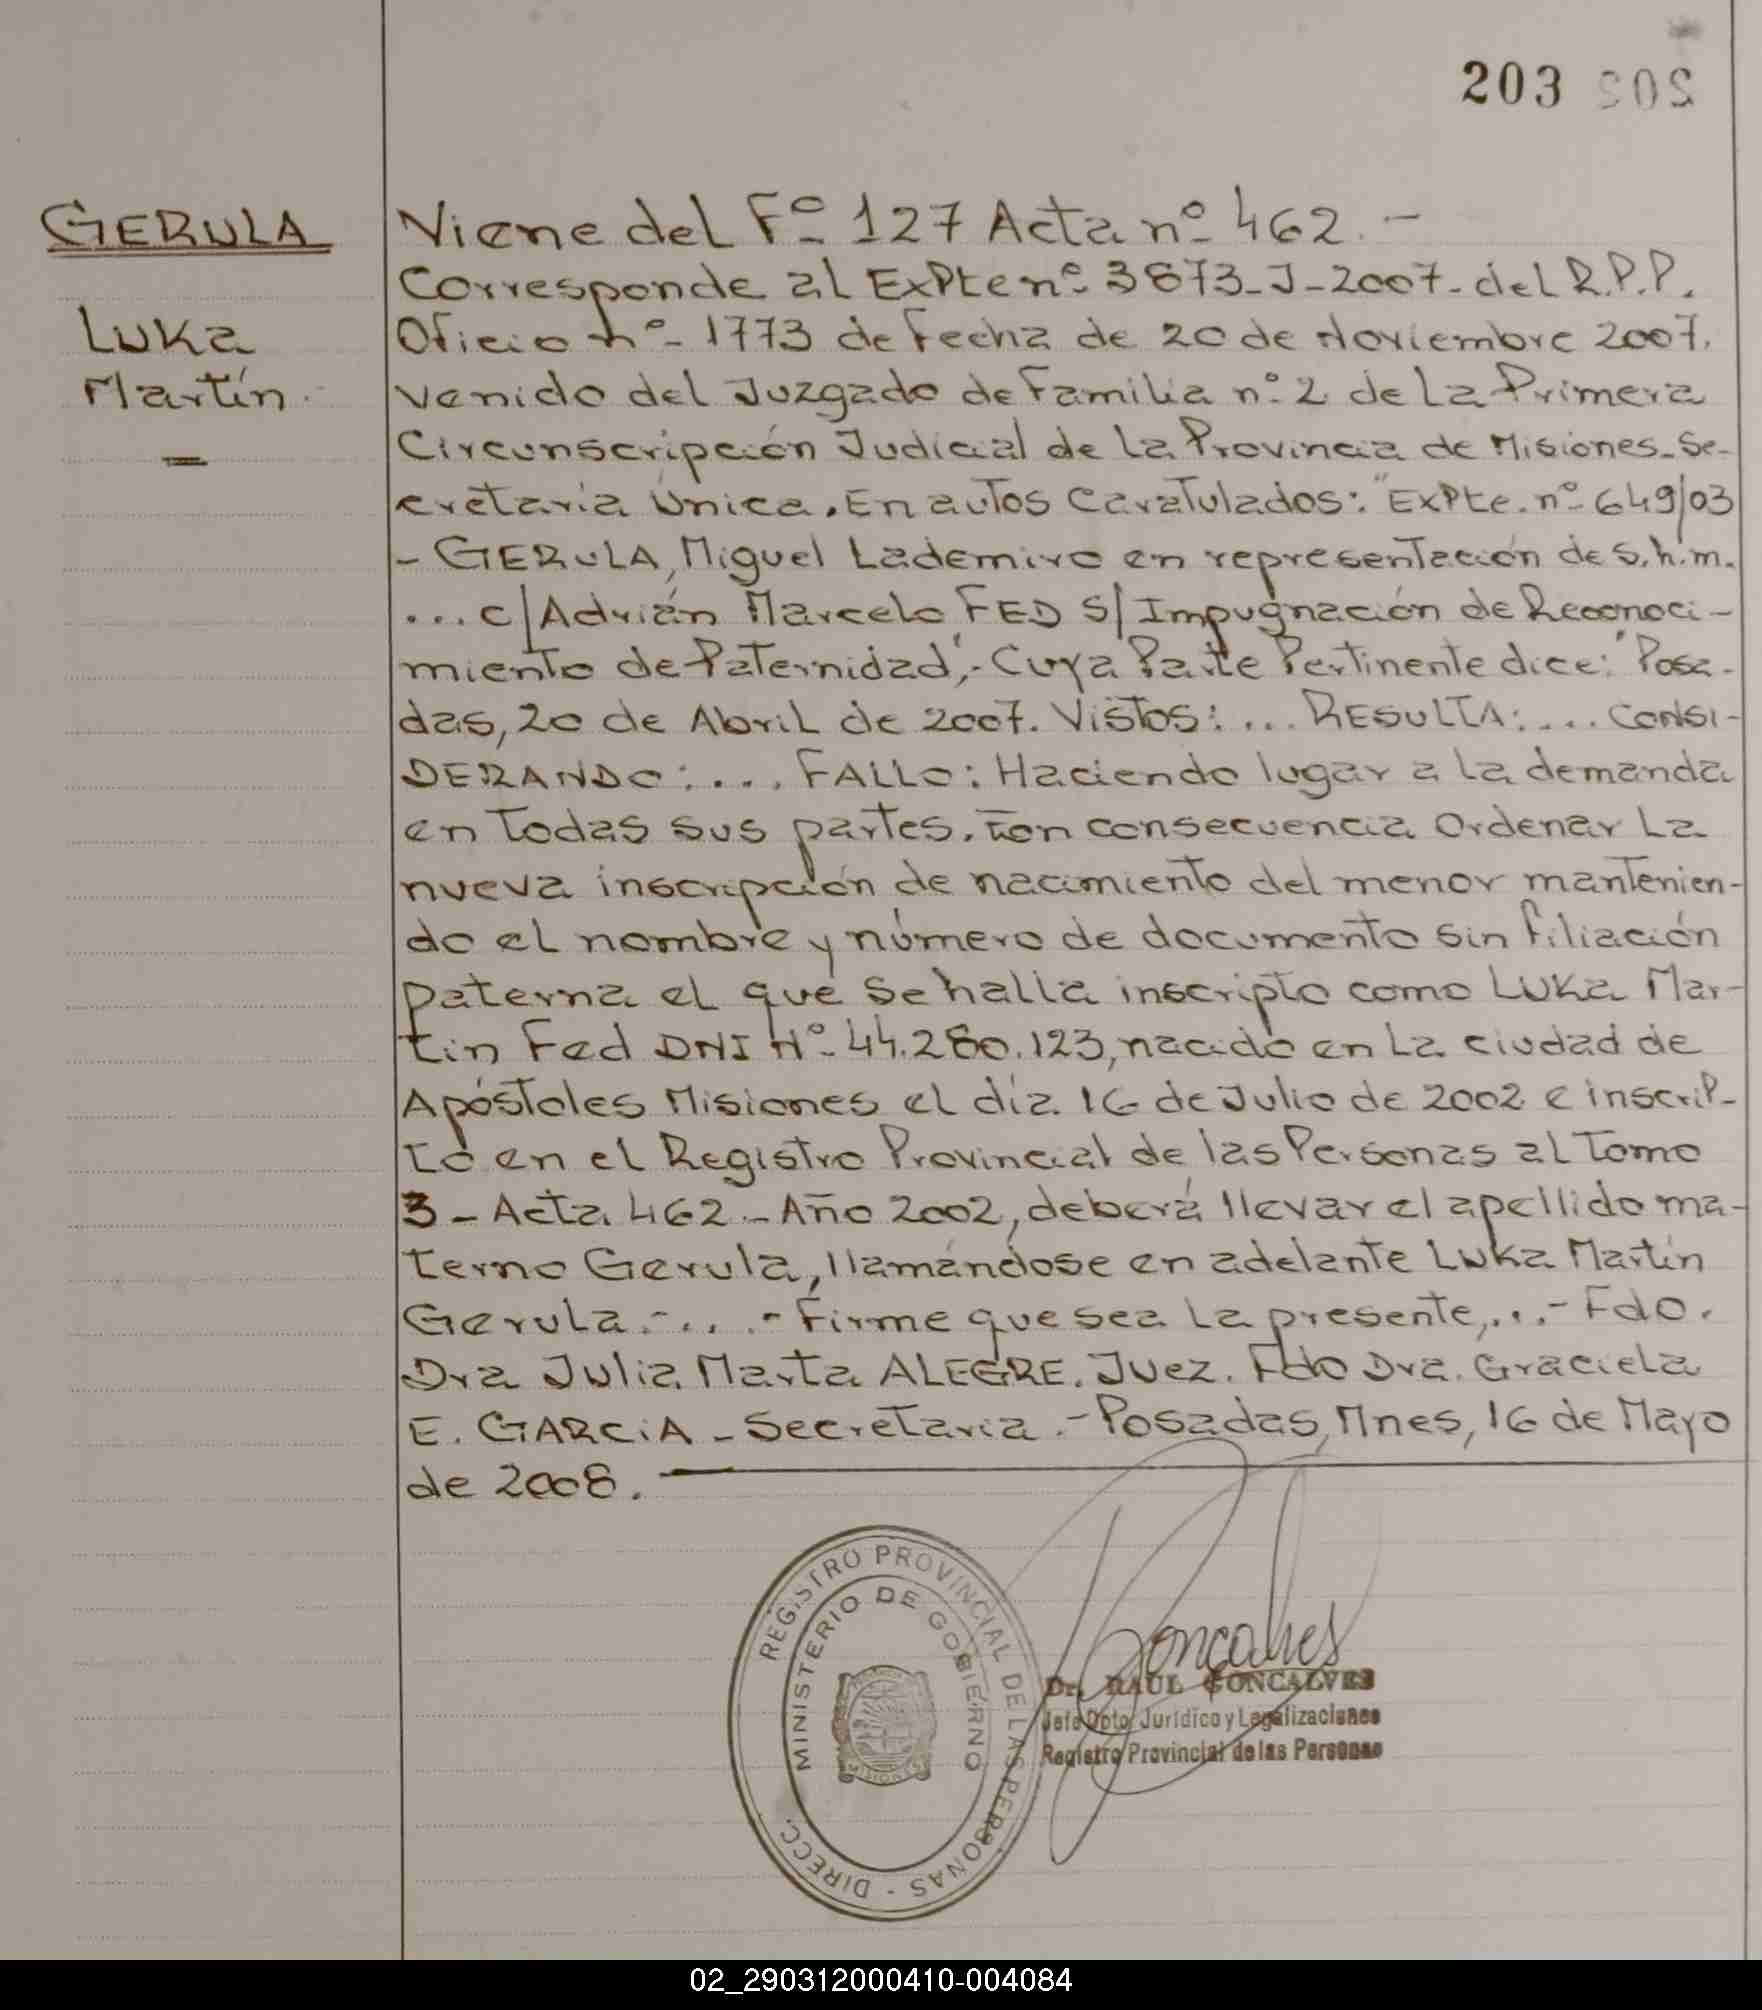 203
GERULA
Luka
Martín.
Viene del Fº 127 Acta nº 462.-
Corresponde al ExPte nº 3873-J-2007- del R.P.P.
Oficio nº 1773 de Fecha de 20 de Noviembre 2007.
venido del Juzgado de Familia nº 2 de La Primera
Circunscripción Judicial de La Provincia de Misiones-Se-
cretaría Única. En autos Caratulados: "ExPte. nº 649/03
- GERULA, Miguel Lademiro en representación de s.h.m.
... c/Adrián Marcelo FED S/Impugnación de Reconoci-
miento de Paternidad",- Cuya Parte Pertinente dice: "Posa-
das, 20 de Abril de 2007. Vistos: ... RESULTA: ... CONSI-
DERANDO: ... FALLO: Haciendo lugar a la demanda
en todas sus partes. En consecuencia Ordenar La
nueva inscripción de nacimiento del menor mantenien-
do el nombre y número de documento sin filiación
paterna el que se halla inscripto como Luka Mar-
tin Fed DNI Nº 44.280.123, nacido en La ciudad de
Apóstoles Misiones el día 16 de Julio de 2002 e inscrip-
to en el Registro Provincial de las Personas al Tomo
3 - Acta 462 - Año 2002, deberá llevar el apellido ma-
terno Gerula, llamándose en adelante Luka Martín
Gerula.-... .- Firme que sea La presente,...- Fdo.
Dra Julia Marta ALEGRE. Juez. Fdo Dra. Graciela
E. GARCIA - Secretaria.- Posadas, Mnes, 16 de Mayo
de 2008.
REGISTRO PROVINCIAL DE LAS PERSONAS - DIRECC.
MINISTERIO DE GOBIERNO
MISIONES
Goncalves
Dr. RAUL GONCALVES
Jefe Dpto. Jurídico y Legalizaciones
Registro Provincial de las Personas
02_290312000410-004084